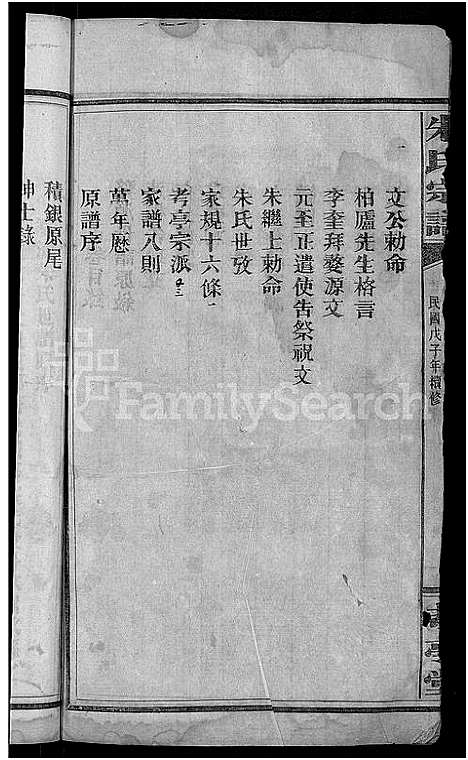 朱氏宗譜
民國戊子年續修
文公勅命
柏廬先生格言
李奎拜婺源文
元至正遣使吿祭祝文
朱繼上勅命
朱氏世攷
家規十六條
考亭宗派
家譜八則
萬年曆
原譜序
積銀原尾
紳士錄
FamilySearch